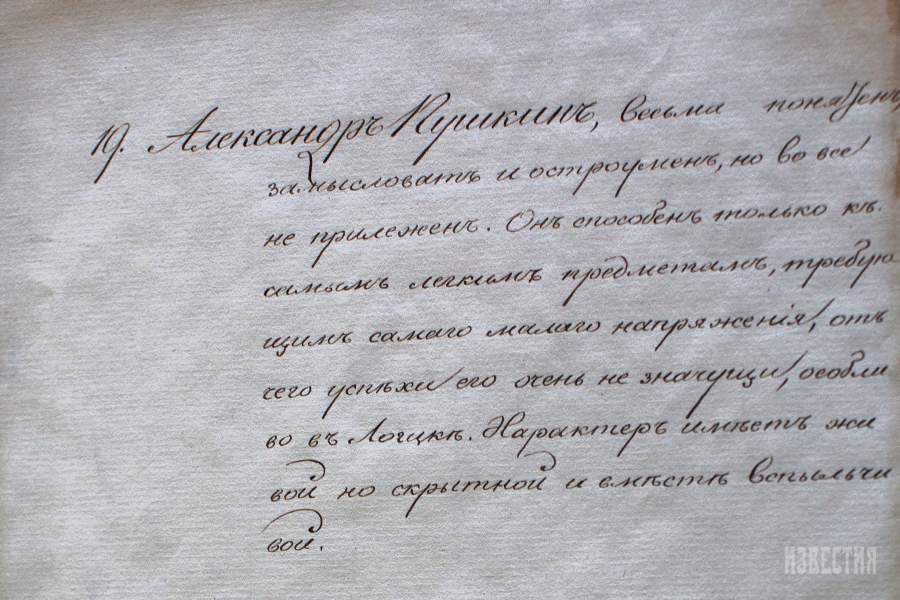 19. Александръ Пушкинъ, весьма понятенъ,
замысловатъ и остроуменъ, но во все
не прилеженъ. Онъ способенъ только къ
самымъ легкимъ предметамъ, требую
щимъ самаго малаго напряженія, отъ
чего успѣхи его очень не значущи, особли
во въ Логикѣ. Характеръ имѣетъ жи
вой но скрытной и вмѣстѣ вспыльчи
вой.
ИЗВЕСТИЯ